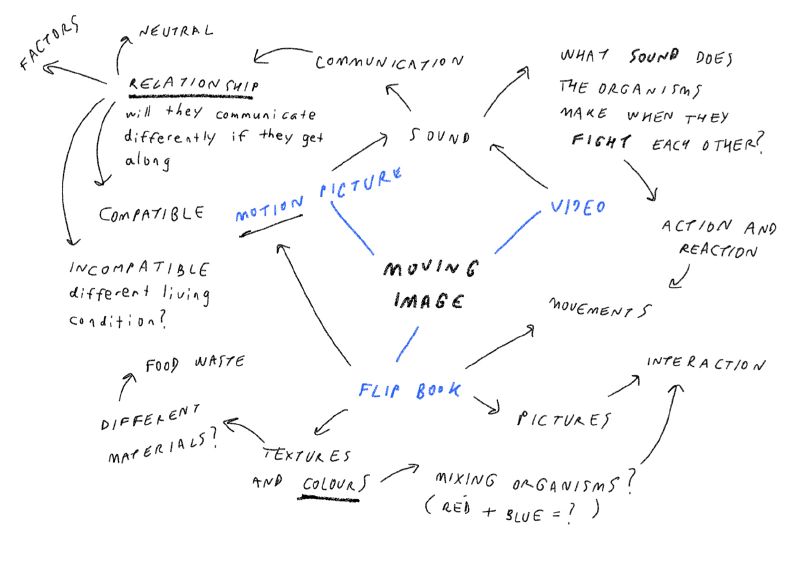 FACTORS
NEUTRAL
COMMUNICATION
RELATIONSHIP
will they communicate
differently if they get
along
SOUND
WHAT SOUND DOES
THE ORGANISMS
MAKE WHEN THEY
FIGHT EACH OTHER?
COMPATIBLE
MOTION PICTURE
VIDEO
ACTION AND
REACTION
INCOMPATIBLE
different living
condition?
MOVING
IMAGE
MOVEMENTS
FOOD WASTE
FLIP BOOK
INTERACTION
DIFFERENT
MATERIALS?
PICTURES
TEXTURES
AND COLOURS
MIXING ORGANISMS?
(RED + BLUE = ?)